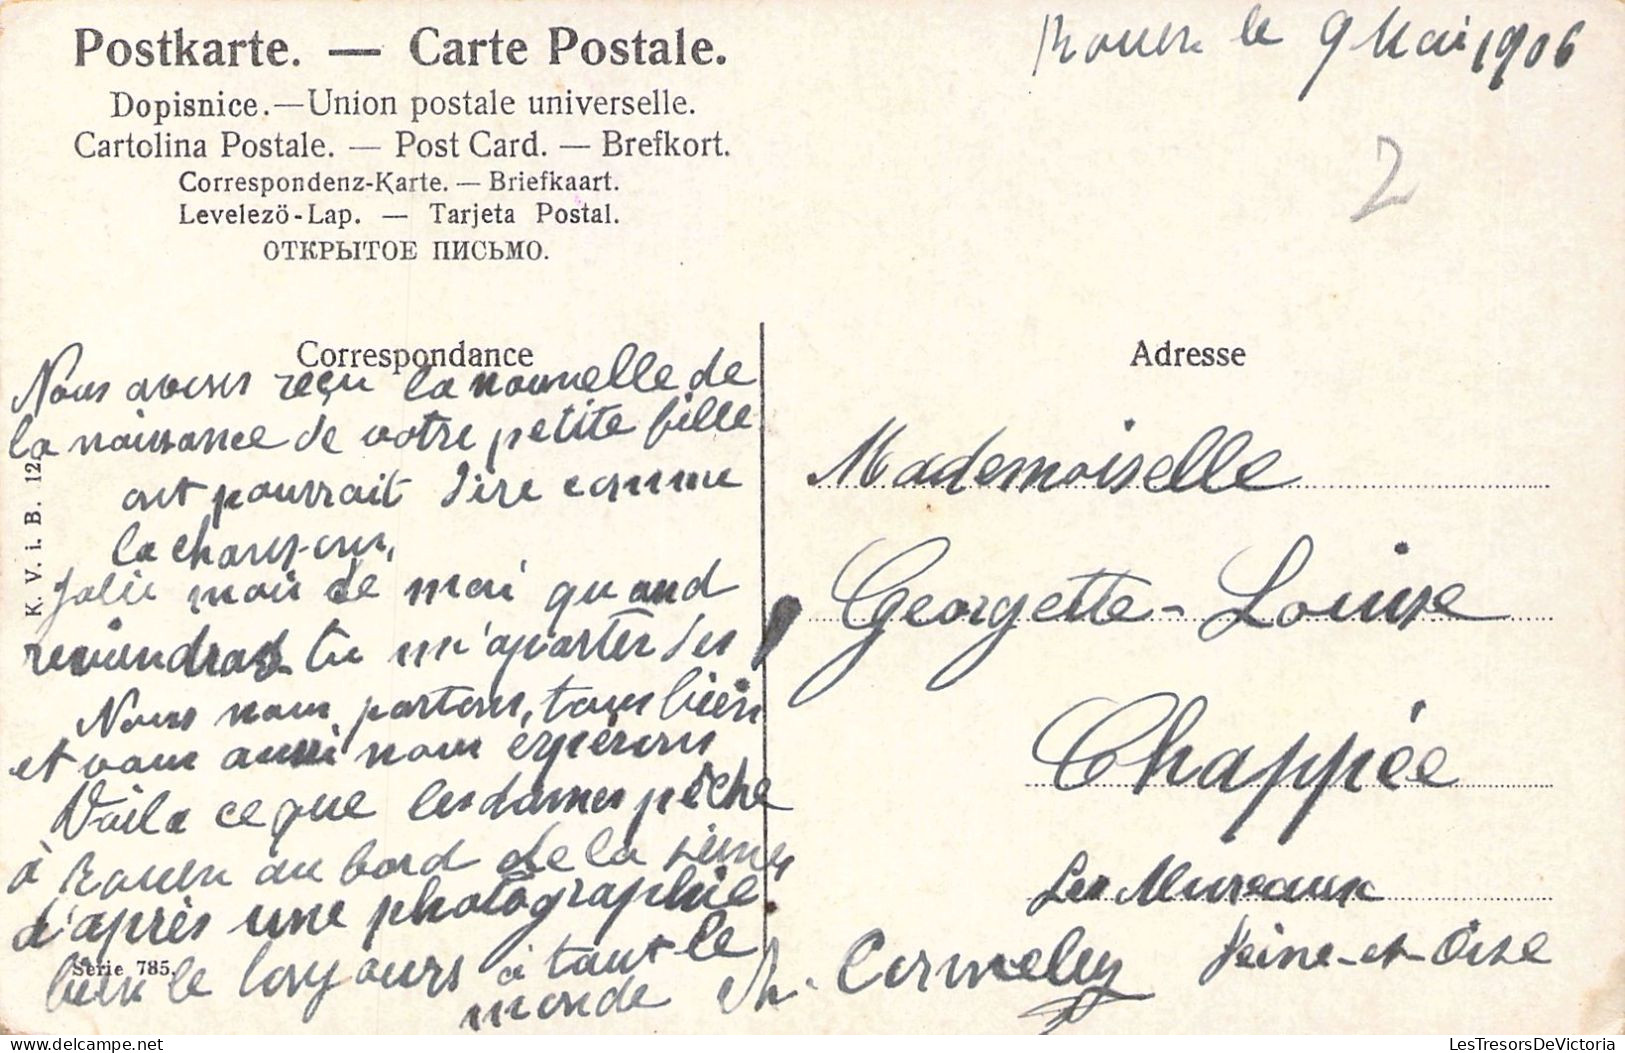 Postkarte. — Carte Postale.
Dopisnice.—Union postale universelle.
Cartolina Postale. — Post Card. — Brefkort.
Correspondenz-Karte. — Briefkaart.
Levelezö-Lap. — Tarjeta Postal.
ОТКРЫТОЕ ПИСЬМО.
Rouen le 9 Mai 1906
2
Correspondance
Nous avons reçu la nouvelle de
la naissance de votre petite fille
ont pourrait dire comme
la chanson,
Jolie mois de mai quand
reviendras tu m'aporter des
Nous nous portons, tous bien
et vous aussi nous espérons
Voila ce que les dames pêche
à Rouen au bord de la seine
d'après une photographie
bien le bonjours à tout le
monde Ch. Cormeley
K. V. i. B. 12.
Serie 785.
Adresse
Mademoiselle
Georgette-Louise
Chappée
Les Mureaux
Seine-et-Oise
LesTresorsDeVictoria